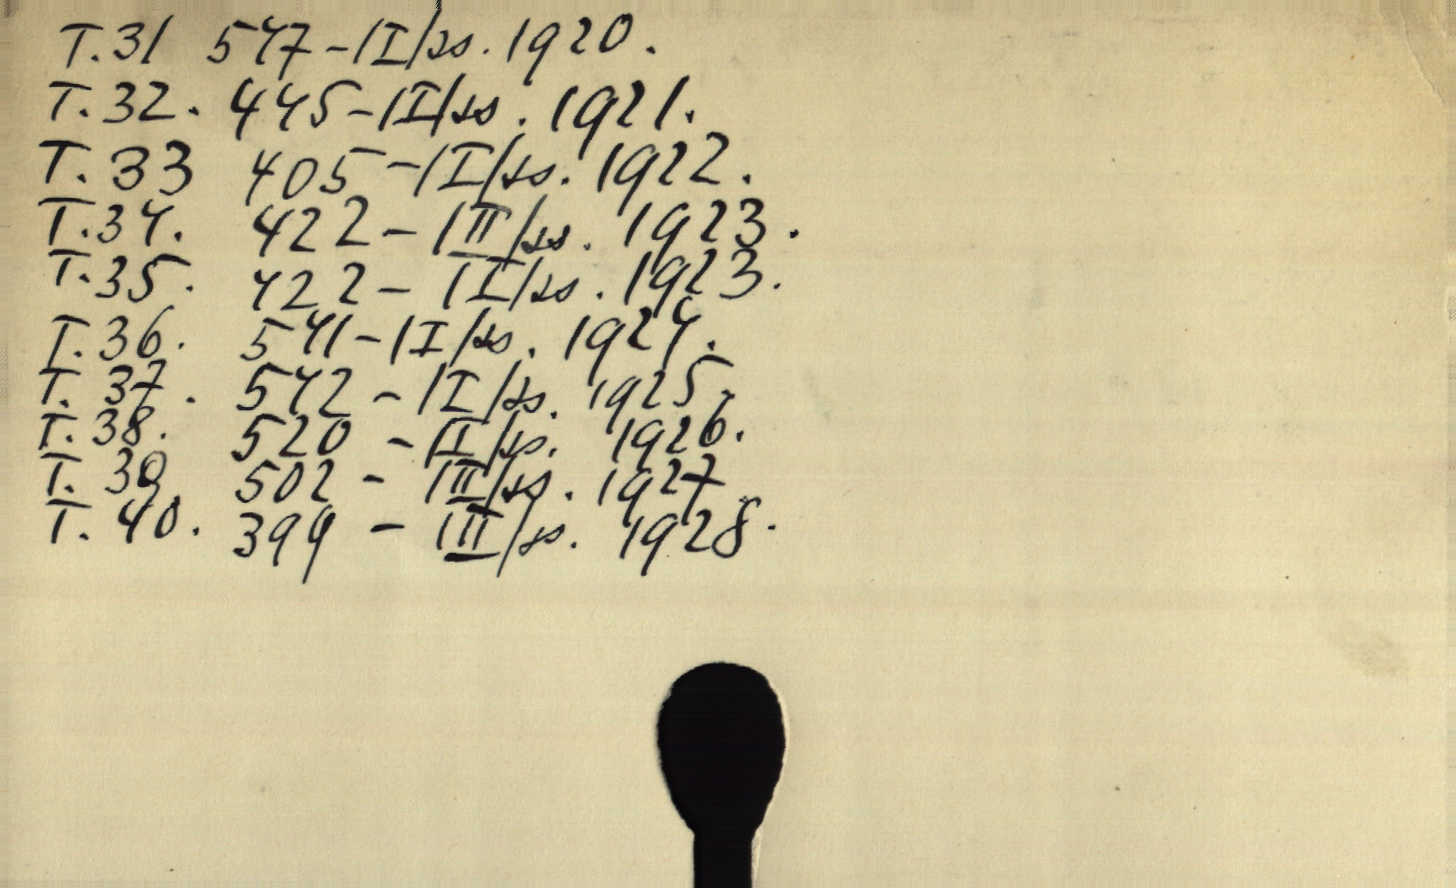 T.31 547-1I/ss. 1920.
T.32. 445-1I/ss. 1921.
T.33 405-1I/ss. 1922.
T.34. 422-1II/ss. 1923.
T.35. 422-1I/ss. 1923.
T.36. 541-1I/ss. 1924.
T.37. 542-1I/ss. 1925.
T.38. 520-1I/ss. 1926.
T.39 502-1II/ss. 1927.
T.40. 399-1II/ss. 1928.